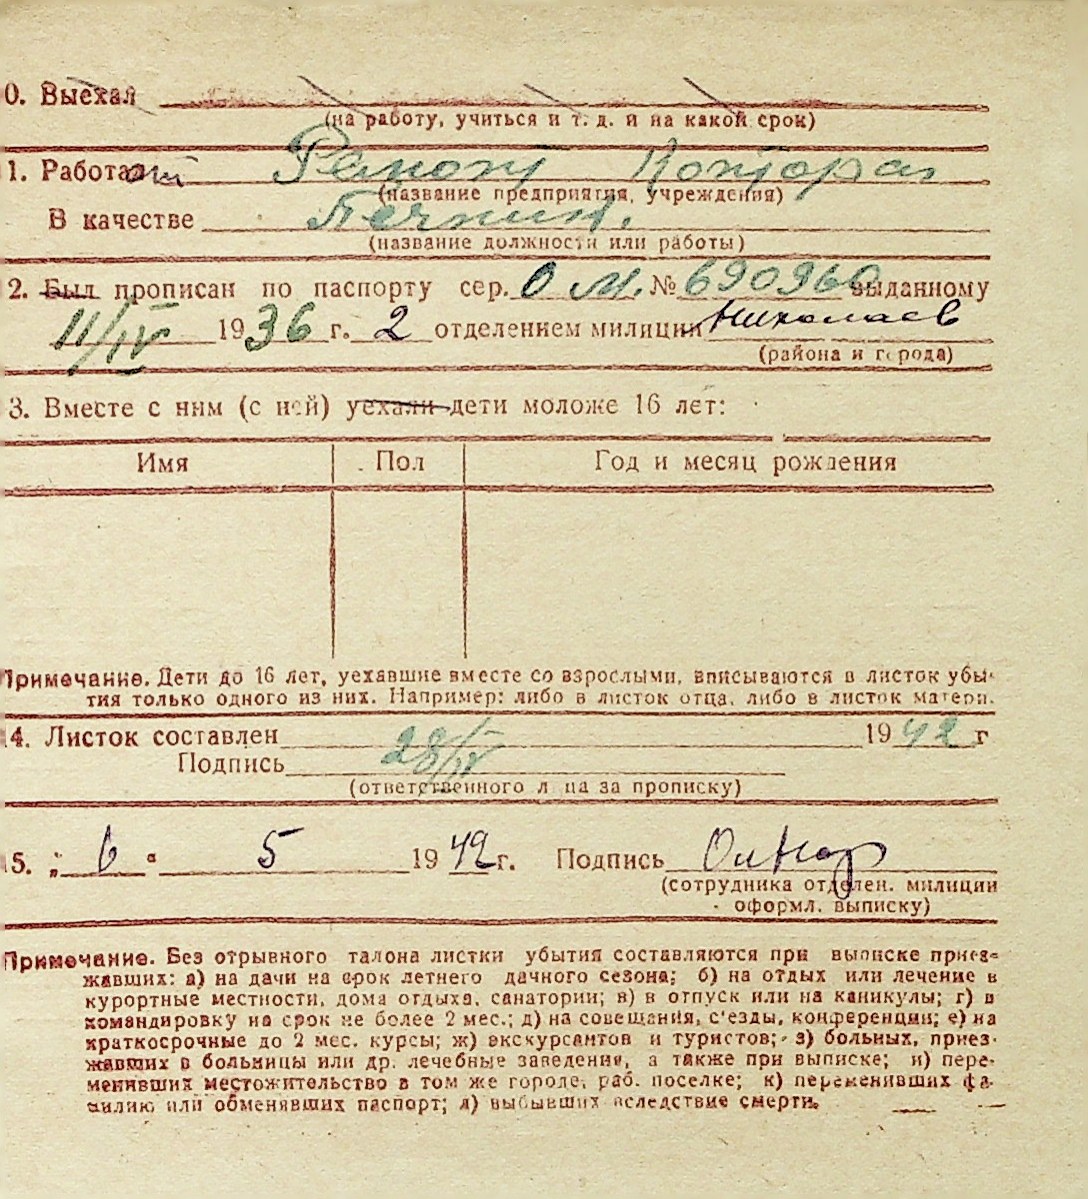 0. Выехал
(на работу, учиться и т. д. и на какой срок)
1. Работает Ремонт Контора
(название предприятия, учреждения)
В качестве Печник.
(название должности или работы)
2. Был прописан по паспорту сер. О М. № 690960 выданному
11/IV 1936 г. 2 отделением милиции Николаев
(района и города)
3. Вместе с ним (с ней) уехали дети моложе 16 лет:
Имя Пол Год и месяц рождения
Примечание. Дети до 16 лет, уехавшие вместе со взрослыми, вписываются в листок убы-
тия только одного из них. Например: либо в листок отца, либо в листок матери.
4. Листок составлен 28/IV 1942 г
Подпись
(ответственного лица за прописку)
5. „6“ 5 1942 г. Подпись
(сотрудника отделен. милиции
оформл. выписку)
Примечание. Без отрывного талона листки убытия составляются при выписке приез-
жавших: а) на дачи на срок летнего дачного сезона; б) на отдых или лечение в
курортные местности, дома отдыха, санатории; в) в отпуск или на каникулы; г) в
командировку на срок не более 2 мес.; д) на совещания, с'езды, конференции; е) на
краткосрочные до 2 мес. курсы; ж) экскурсантов и туристов; з) больных, приез-
жавших в больницы или др. лечебные заведения, а также при выписке; и) пере-
менивших местожительство в том же городе, раб. поселке; к) переменивших фа-
милию или обменявших паспорт; л) выбывших вследствие смерти.